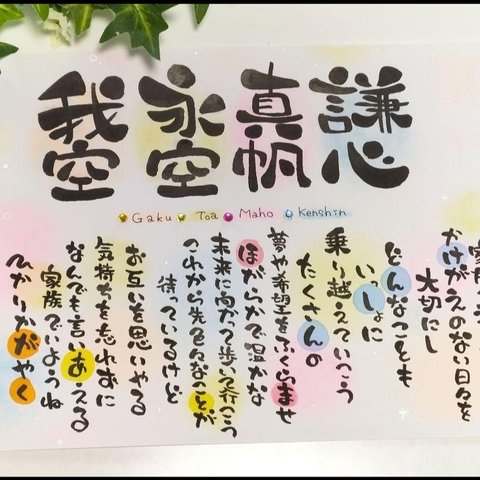 謙心
真帆
永空
我空
Gaku Toa Maho Kenshin
かけがえのない日々を
大切にし
どんなことも
いっしょに
乗り越えていこう
たくさんの
夢や希望をふくらませ
ほがらかで温かな
未来に向かって歩いて行こう
これから先色々なことが
待っているけど
お互いを思いやる
気持ちを忘れずに
なんでも言いあえる
家族でいようね
ひかりかがやく